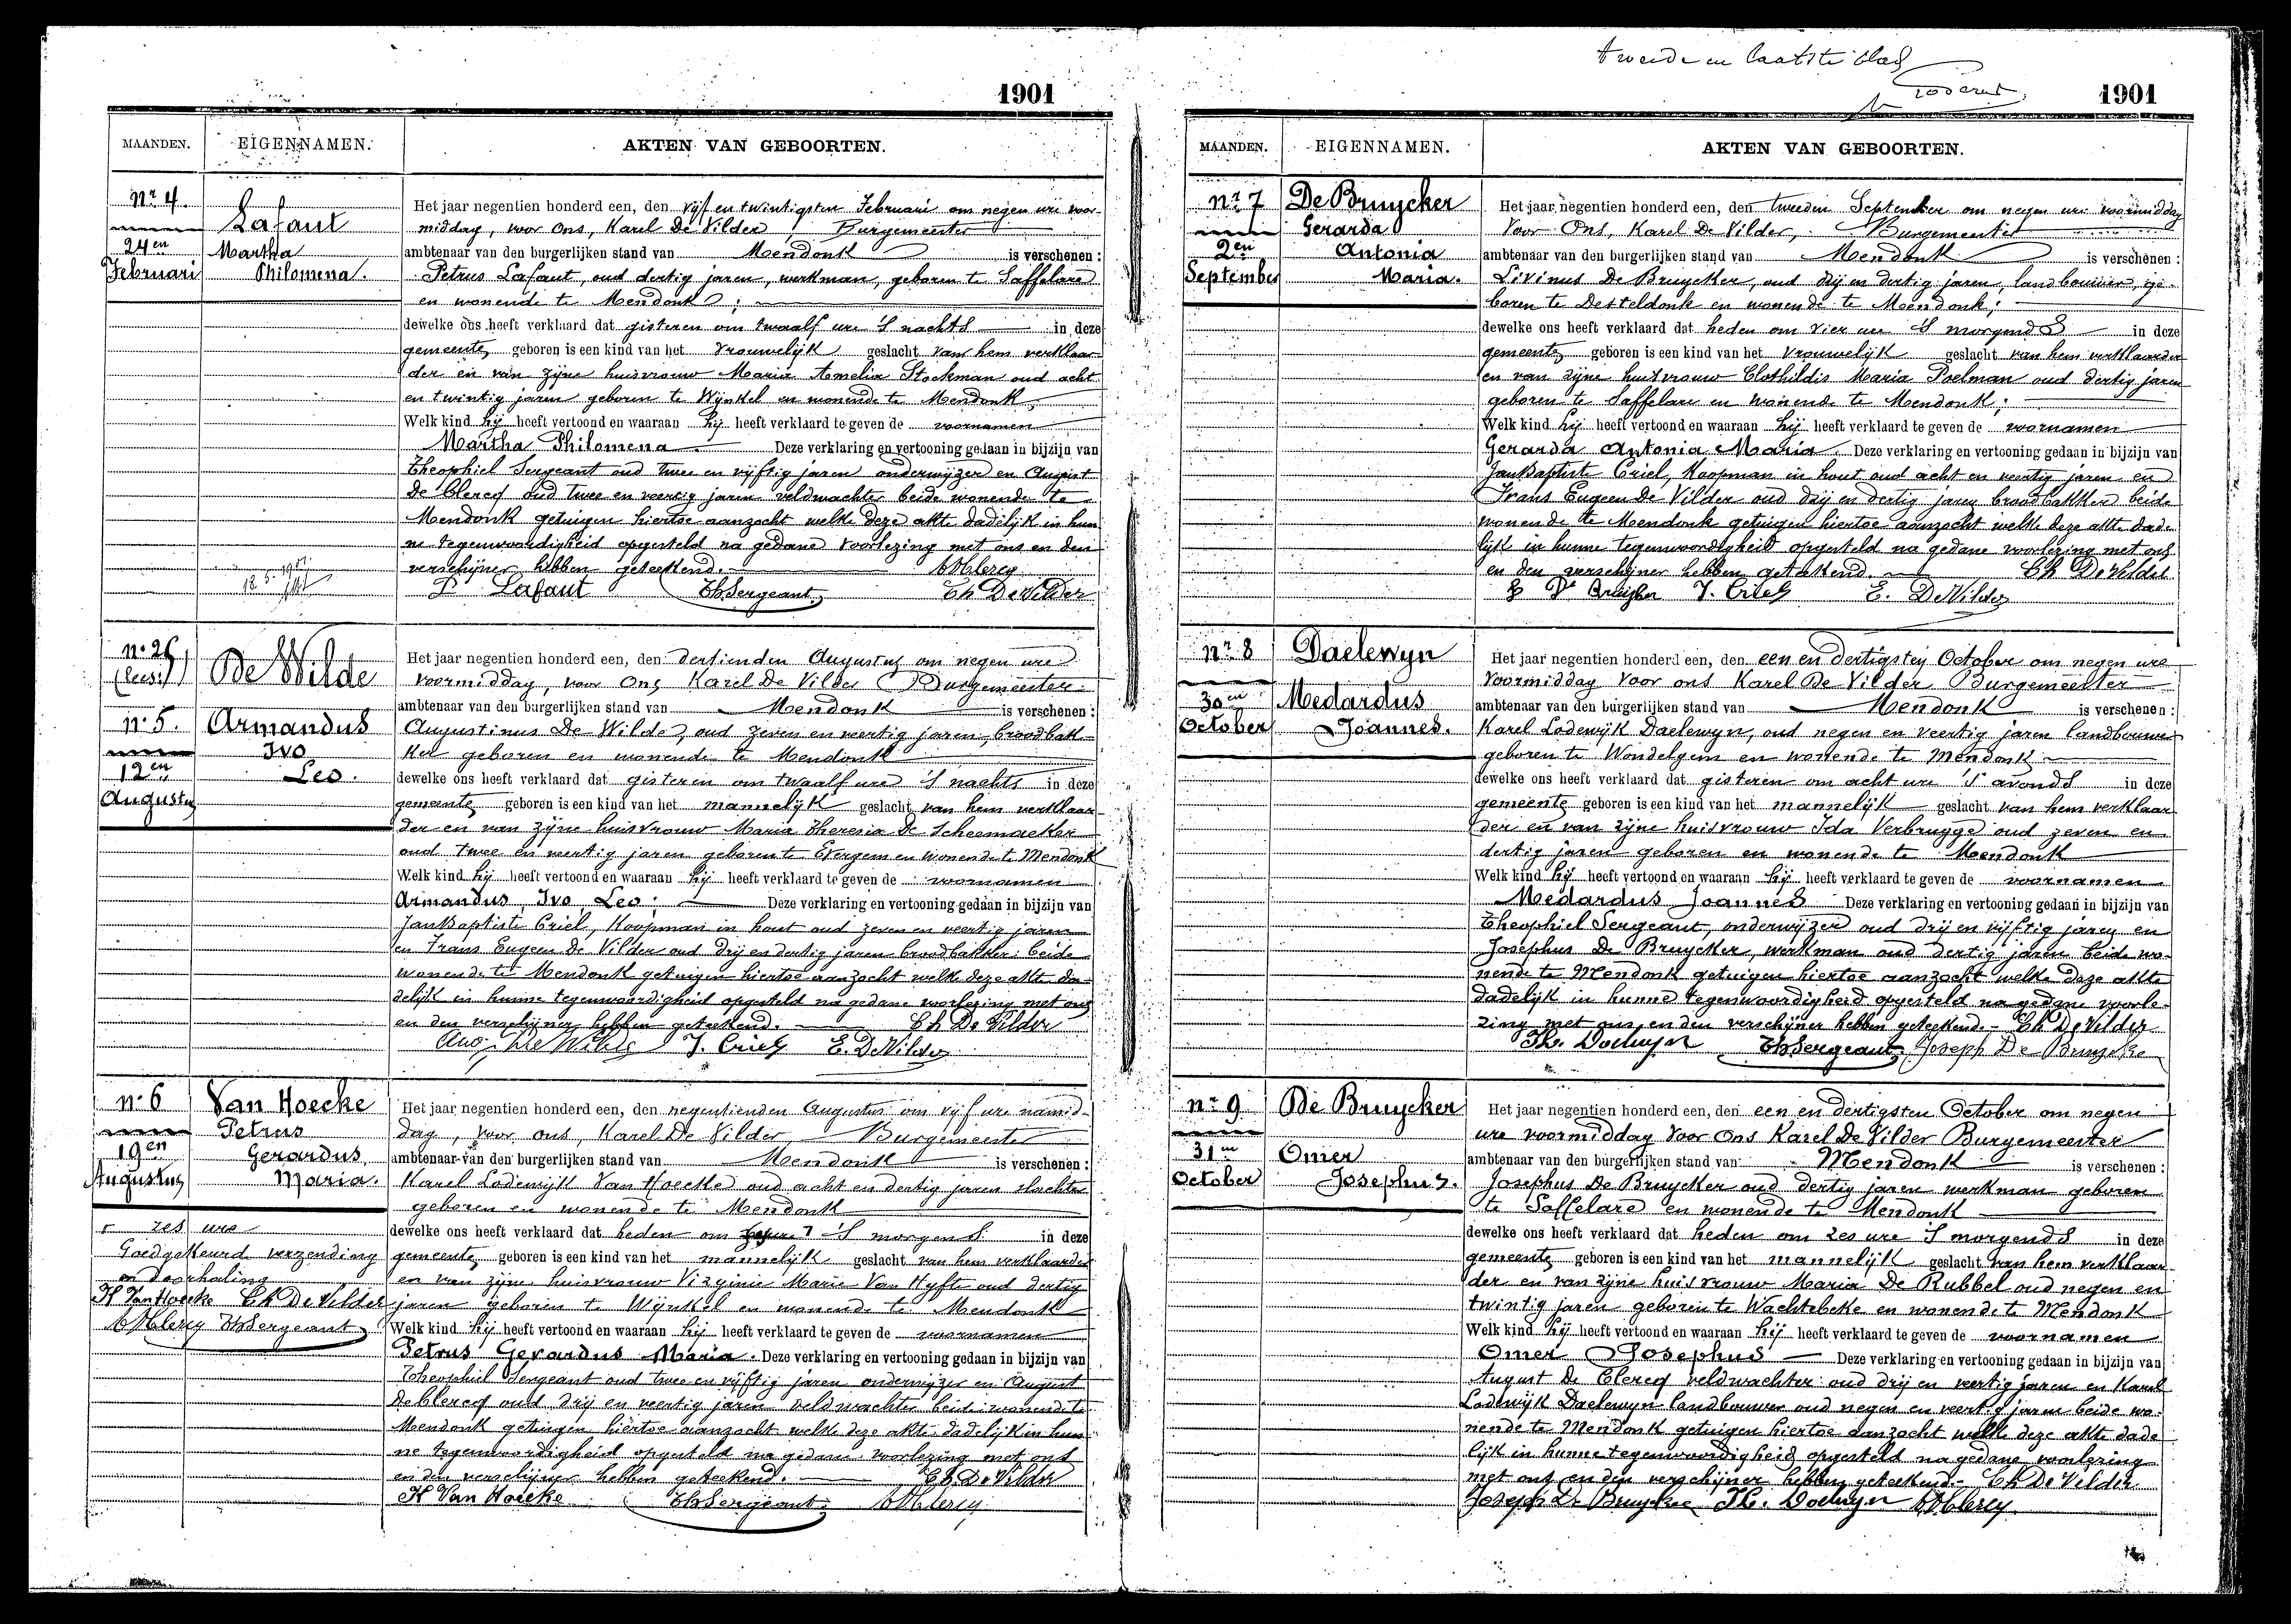 1901
MAANDEN. EIGENNAMEN. AKTEN VAN GEBOORTEN.
Nr 4.
24en
Februari
Lafaut
Martha
Philomena.
Het jaar negentien honderd een, den vijf en twintigsten Februari om negen ure voor-
middag, voor Ons, Karel De Vilder, Burgemeester
ambtenaar van den burgerlijken stand van Mendonk is verschenen :
Petrus Lafaut, oud dertig jaren, werkman, geboren te Saffelare
en wonende te Mendonk;
dewelke ons heeft verklaard dat gisteren om twaalf ure 's nachts in deze
gemeente geboren is een kind van het vrouwelijk geslacht van hem verklaar-
der en van zijne huisvrouw Maria Amelia Stockman oud acht
en twintig jaren geboren te Wijnkel en wonende te Mendonk;
Welk kind hij heeft vertoond en waaraan hij heeft verklaard te geven de voornamen
Martha Philomena Deze verklaring en vertooning gedaan in bijzijn van
Theophiel Sergeant oud twee en vijftig jaren onderwijzer en August
De Clercq oud twee en veertig jaren veldwachter beide wonende te
Mendonk getuigen hiertoe aanzocht welke deze akte dadelijk in hun
ne tegenwoordigheid opgesteld na gedane voorlezing met ons en den
verschijner hebben geteekend. ADClercq
P. Lafaut ThSergeant Ch De Vilder
nr. 26
(leest)
nr 5.
12en
Augustus
De Wilde
Armandus
Ivo
Leo.
Het jaar negentien honderd een, den dertienden Augustus om negen ure
voormiddag, voor Ons Karel De Vilder Burgemeester
ambtenaar van den burgerlijken stand van Mendonk is verschenen :
Augustinus De Wilde, oud zeven en veertig jaren, broodbak-
ker geboren en wonende te Mendonk
dewelke ons heeft verklaard dat gisteren om twaalf ure 's nachts in deze
gemeente geboren is een kind van het mannelijk geslacht van hem verklaar
der en van zijne huisvrouw Maria Theresia De Scheemaeker
oud twee en veertig jaren geboren te Evergem en wonende te Mendonk
Welk kind hij heeft vertoond en waaraan hij heeft verklaard te geven de voornamen
Armandus, Ivo, Leo; Deze verklaring en vertooning gedaan in bijzijn van
JanBaptiste Criel, Koopman in hout oud zeven en veertig jaren
en Frans Eugeen De Vilder oud drij en dertig jaren broodbakker beide
wonende te Mendonk getuigen hiertoe aanzocht welke deze akte da-
delijk in hunne tegenwoordigheid opgesteld na gedane voorlezing met ons
en den verschijner hebben geteekend. Ch De Vilder
Aug. De Wilde J. Criel E. DeVilder
nr 6
19en
Augustus
Van Hoecke
Petrus
Gerardus
Maria.
Het jaar negentien honderd een, den negentienden Augustus om vijf ure namid-
dag, voor ons, Karel De Vilder, Burgemeester
ambtenaar van den burgerlijken stand van Mendonk is verschenen :
Karel Lodewijk Van Hoecke oud acht en dertig jaren slachter
geboren en wonende te Mendonk
dewelke ons heeft verklaard dat heden om 's morgens in deze
gemeente geboren is een kind van het mannelijk geslacht van hem verklaarder
en van zijne huisvrouw Virginie Marie Van Hyfte oud dertig
jaren geboren te Wijnkel en wonende te Mendonk
Welk kind hij heeft vertoond en waaraan hij heeft verklaard te geven de voornamen
Petrus Gerardus Maria. Deze verklaring en vertooning gedaan in bijzijn van
Theophiel Sergeant oud twee en vijftig jaren onderwijzer en August
De Clercq oud drij en veertig jaren veldwachter beide wonende te
Mendonk getuigen hiertoe aanzocht welke deze akte dadelijk in hun
ne tegenwoordigheid opgesteld na gedane voorlezing met ons
en den verschijner hebben geteekend. Ch De Vilder
K Van Hoecke ThSergeant ADClercq
zes ure
Goedgekeurd verzending
en doorhaling
K Van Hoecke Ch De Vilder
ADClercq ThSergeant
tweede en laatste blad
1901
MAANDEN. EIGENNAMEN. AKTEN VAN GEBOORTEN.
nr 7
2en
September
De Bruycker
Gerarda
Antonia
Maria.
Het jaar negentien honderd een, den tweeden September om negen ure voormiddag
Voor Ons, Karel De Vilder, Burgemeester
ambtenaar van den burgerlijken stand van Mendonk is verschenen :
Livinus De Bruycker, oud drij en dertig jaren, landbouwer, ge-
boren te Desteldonk en wonende te Mendonk;
dewelke ons heeft verklaard dat heden om vier ure 's morgends in deze
gemeente geboren is een kind van het vrouwelijk geslacht van hem verklaarder
en van zijne huisvrouw Clothildis Maria Poelman oud dertig jaren
geboren te Saffelare en wonende te Mendonk;
Welk kind hij heeft vertoond en waaraan hij heeft verklaard te geven de voornamen
Gerarda Antonia Maria. Deze verklaring en vertooning gedaan in bijzijn van
JanBaptiste Criel, Koopman in hout oud acht en veertig jaren en
Frans Eugeen De Vilder oud drij en dertig jaren broodbakker beide
wonende te Mendonk getuigen hiertoe aanzocht welke deze akte dade-
lijk in hunne tegenwoordigheid opgesteld na gedane voorlezing met ons
en den verschijner hebben geteekend. Ch De Vilder
L De Bruyker J. Criel E. DeVilder
nr 8
30en
October
Daelewyn
Medardus
Joannes.
Het jaar negentien honderd een, den een en dertigsten October om negen ure
voormiddag voor ons Karel De Vilder Burgemeester
ambtenaar van den burgerlijken stand van Mendonk is verschenen :
Karel Lodewijk Daelewyn, oud negen en veertig jaren landbouwer
geboren te Wondelgem en wonende te Mendonk
dewelke ons heeft verklaard dat gisteren om acht ure 's avonds in deze
gemeente geboren is een kind van het mannelijk geslacht van hem verklaar
der en van zijne huisvrouw Ida Verbrugge oud zeven en
dertig jaren geboren en wonende te Mendonk
Welk kind hij heeft vertoond en waaraan hij heeft verklaard te geven de voornamen
Medardus Joannes Deze verklaring en vertooning gedaan in bijzijn van
Theophiel Sergeant, onderwijzer oud drij en vijftig jaren en
Josephus De Bruycker, werkman oud dertig jaren beide wo-
nende te Mendonk getuigen hiertoe aanzocht welke deze akte
dadelijk in hunne tegenwoordigheid opgesteld na gedane voorle-
zing met ons en den verschijner hebben geteekend. - Ch De Vilder
ThSergeant Joseph De Bruycke
nr 9
31en
October
De Bruycker
Omer
Josephus.
Het jaar negentien honderd een, den een en dertigsten October om negen
ure voormiddag voor Ons Karel De Vilder Burgemeester
ambtenaar van den burgerlijken stand van Mendonk is verschenen :
Josephus De Bruycker oud dertig jaren werkman geboren
te Saffelare en wonende te Mendonk
dewelke ons heeft verklaard dat heden om zes ure 's morgends in deze
gemeente geboren is een kind van het mannelijk geslacht van hem verklaar
der en van zijne huisvrouw Maria De Rubbel oud negen en
twintig jaren geboren te Wachtebeke en wonende te Mendonk
Welk kind hij heeft vertoond en waaraan hij heeft verklaard te geven de voornamen
Omer Josephus Deze verklaring en vertooning gedaan in bijzijn van
August De Clercq veldwachter oud drij en veertig jaren en Karel
Lodewijk Daelewyn landbouwer oud negen en veertig jaren beide wo-
nende te Mendonk getuigen hiertoe aanzocht welke deze akte dade
lijk in hunne tegenwoordigheid opgesteld na gedane voorlezing
met ons en den verschijner hebben geteekend. - Ch De Vilder
Joseph De Bruycke ADClercq